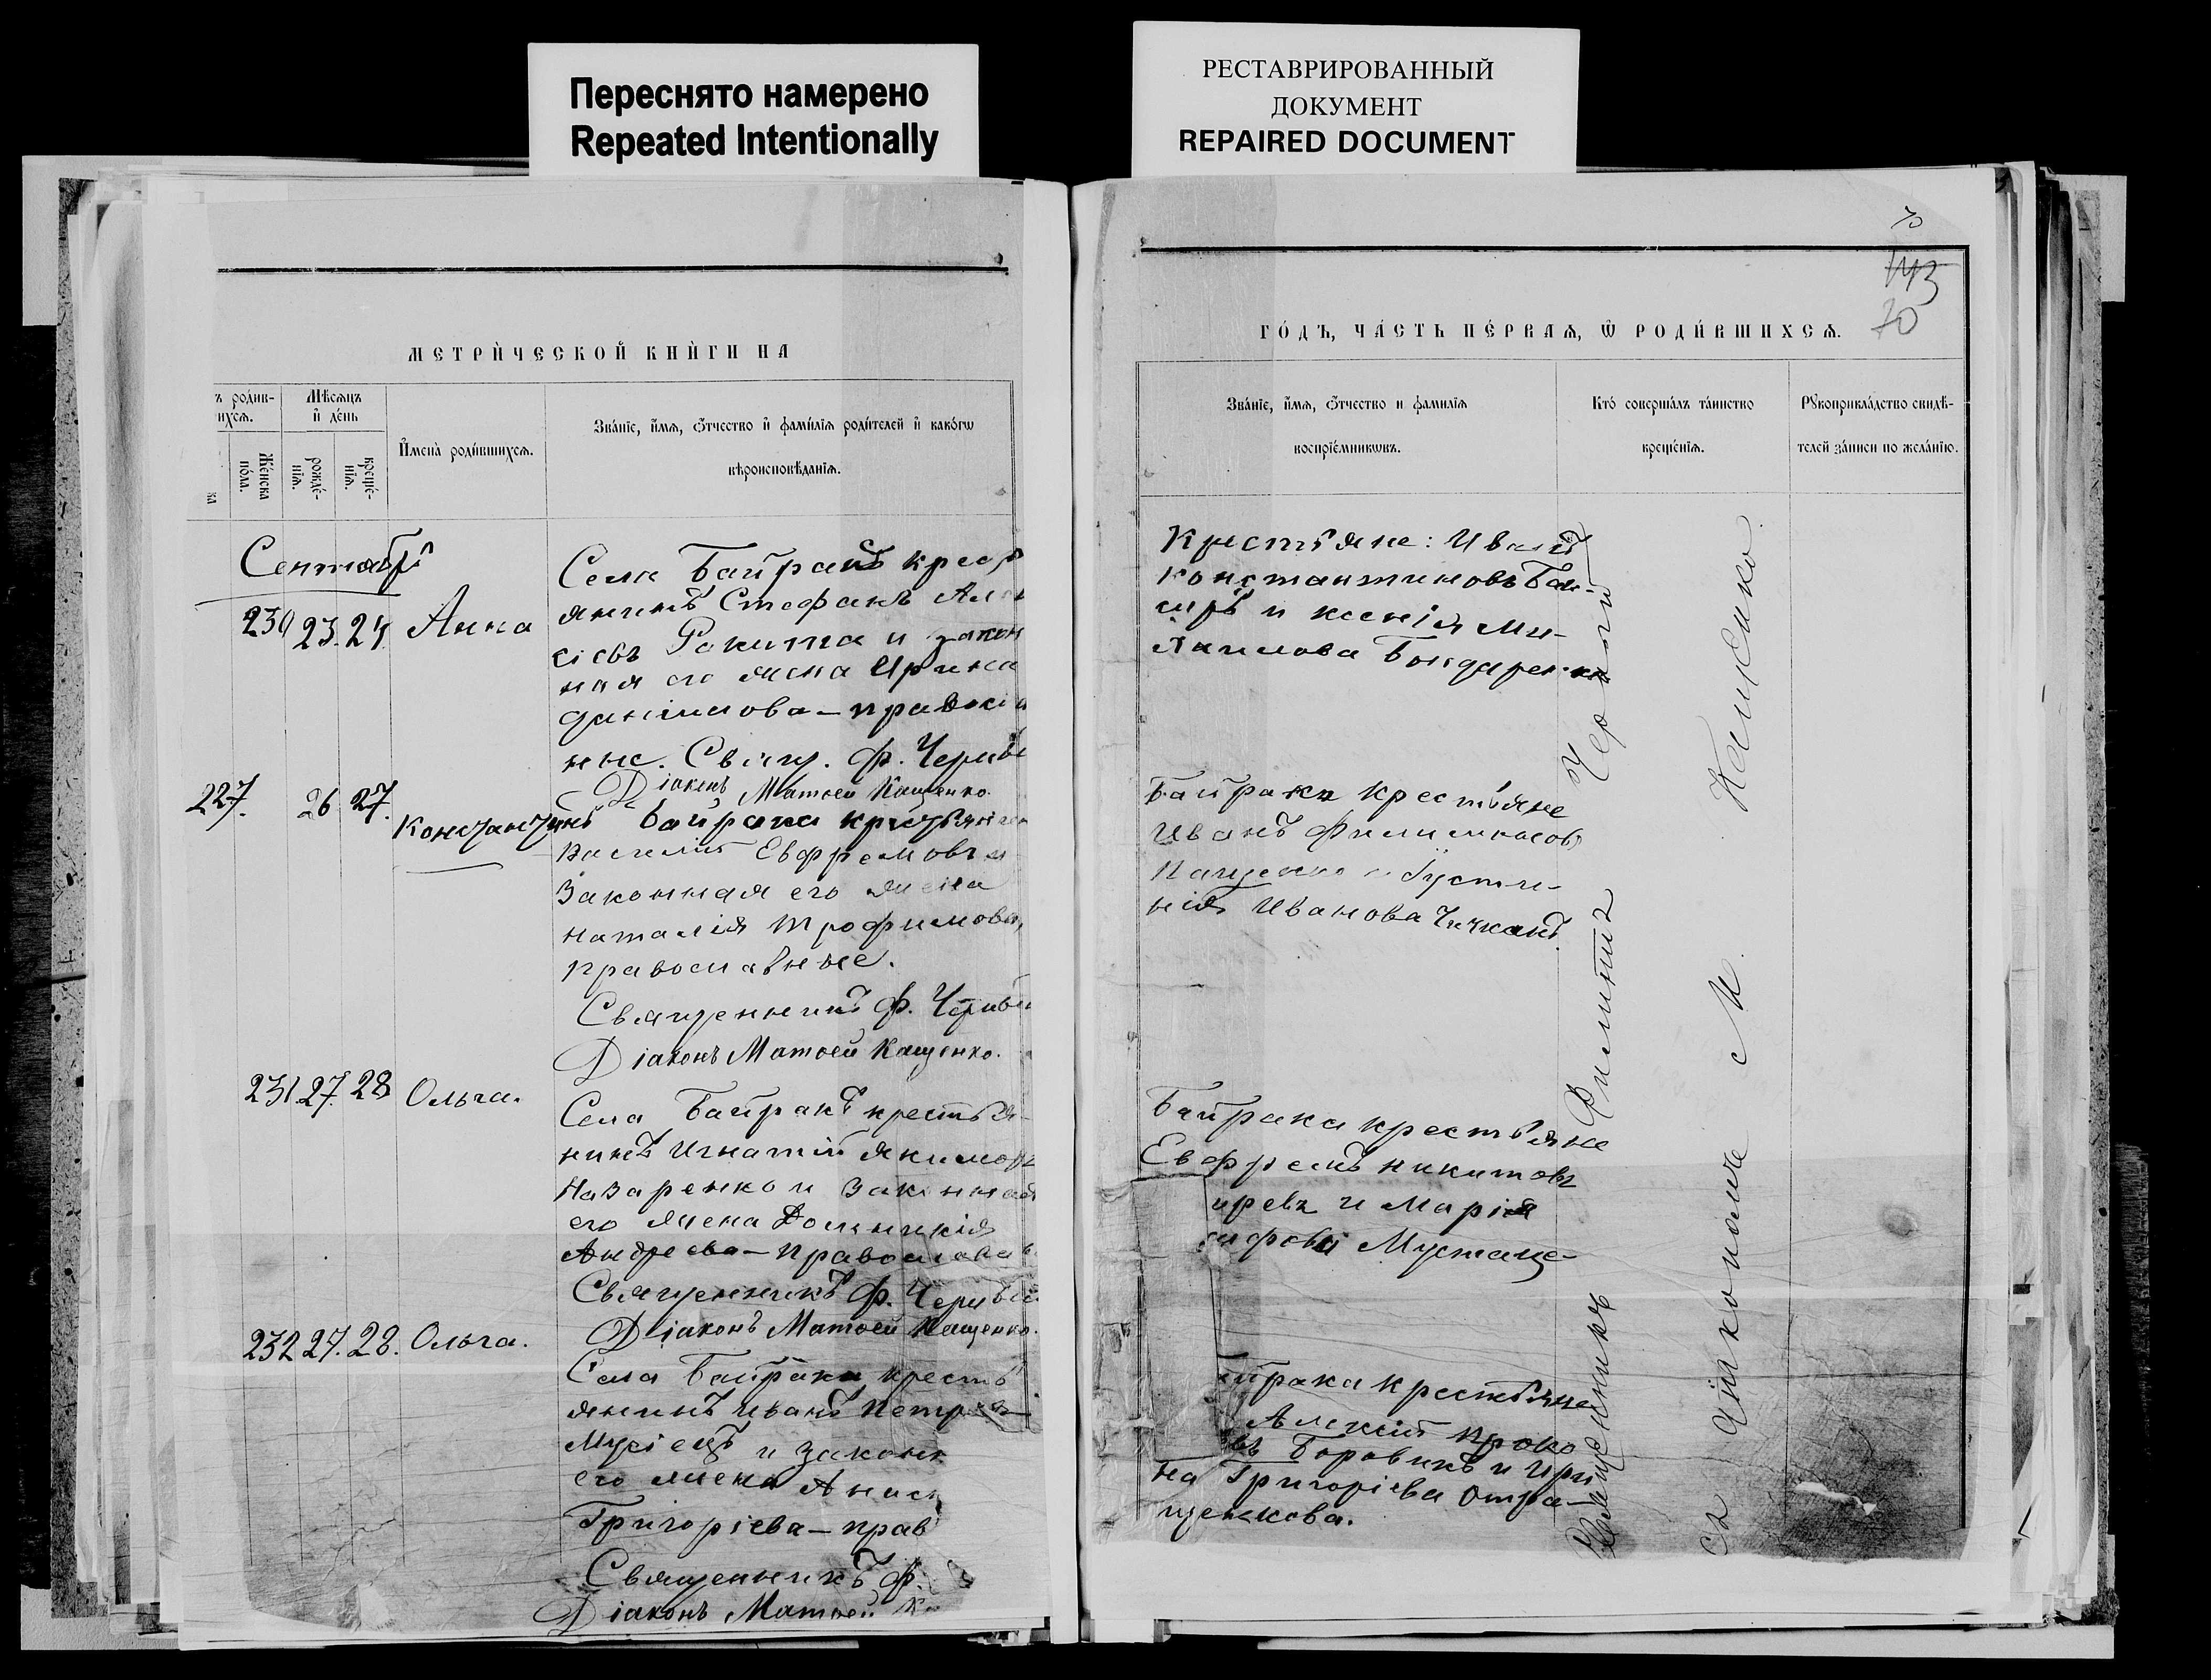 Переснято намерено
Repeated Intentionally
РЕСТАВРИРОВАННЫЙ
ДОКУМЕНТ
REPAIRED DOCUMENT
МЕТРИ́ЧЕСКОЙ КНИ́ГИ НА
ъ роди́в-
ихсѧ.
Же́нска
по́ла.
Мѣ́сяцъ
и҆ де́нь
рожде́-
нїѧ.
креще́-
нїѧ.
И҆мена̀ роди́вшихсѧ.
Зва́нїе, и҆́мѧ, ѻ҆́тчество и҆ фами́лїѧ роди́телей и҆ како́гѡ
вѣроисповѣ́данїѧ.
Сентябрь
230 23. 24. Анна
Села Байракъ крест
янинъ Стефанъ Але
сіевъ Ракита и закон
ная его жена Ирина
Даніилова — правосл
ные. Свящ. Ф. Черня
Діаконъ Матвей Кащенко.
227. 26 27. Константинъ
Байрака крестьянин
Василий Евфремовъ и
Законная его жена
Наталія Трофимова,
православные.
Священникъ Ф. Черня
Діаконъ Матвей Кащенко.
231 27. 28 Ольга.
Села Байракъ крестья-
нинъ Игнатій Якимовъ
Назаренко и Законная
его жена Домникія
Андреева — православн
Священникъ Ф. Черня
Діаконъ Матвей Кащенко.
232 27. 28. Ольга.
Села Байрака кресть
янинъ Иванъ Петр
Мусіецъ и законн
его жена Анас
Григоріева — прав
Священникъ Ф.
Діаконъ Матвей К
70
143
70
ГО́ДЪ, ЧА́СТЬ ПЕ́РВАѦ, Ѡ҆ РОДИ́ВШИХСѦ.
Зва́нїе, и҆́мѧ, ѻ҆́тчество и фами́лїѧ
воспрїе́мникѡвъ.
Кто̀ соверша́лъ та́инство
креще́нїѧ.
Рꙋкоприкла́дство свидѣ́-
телей за́писи по жела́нїю.
Крестьяне: Иванъ
Константиновъ
и Ксенія Ми-
хаилова Бондаренко
Байрака Крестьяне
Иванъ Филимоновъ
Кащенко и Густи-
нія Иванова Чичканъ.
Байрака крестьяне
Евфремъ Никитовъ
и Марія
Мустаце-
йрака Крестьяне
Алексій Проко
въ Боровикъ и Ири
на Григоріева Отра-
щенкова.
Священникъ Филиппъ Черный
съ діакономъ М. Кащенко.